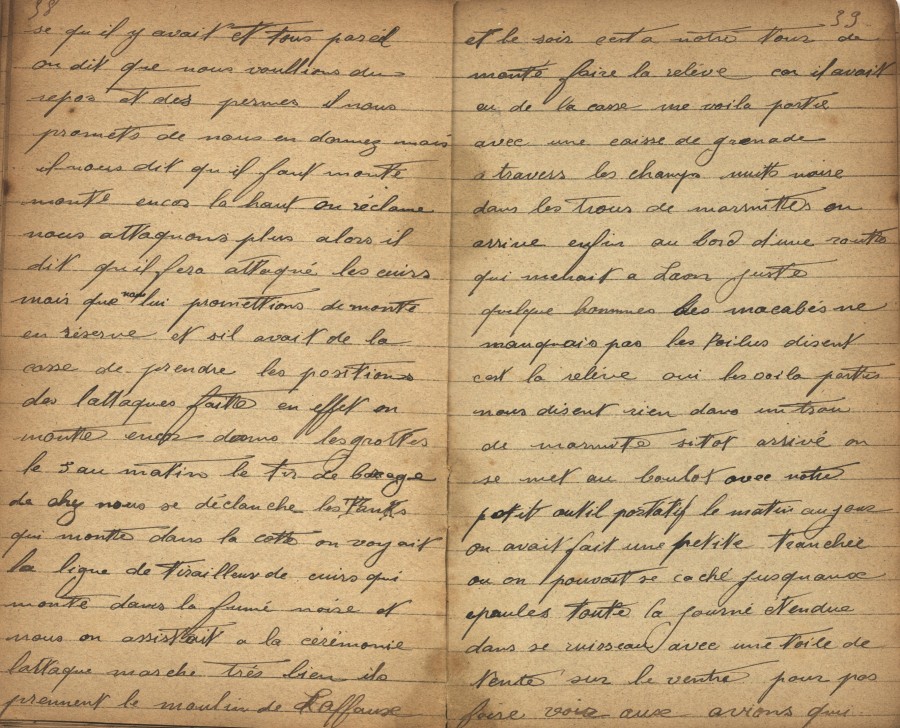 38
se qu il y avait et tous pareil
on dit que nous voullions du
repos et des permes il nous
promets de nous en donnez mais
il nous dit qu il faut monté
monté encor la haut on réclame
nous attaquons plus alors il
dit qu il fera attaqué les cuirs
mais que nous lui promettions de monté
en réserve et sil avait de la
casse de prendre les positions
des lattaques faite en effet on
monte encor dans les grottes
le 5 au matin le tir de barage
de chez nous se déclanche les Tanks
qui monte dans la cote on voyait
la ligne de tirailleur de cuirs qui
monte dans la fumé noire et
nous on assistait a la cérémonie
lattaque marche trés bien ils
prennent le moulin de Laffaux
39
et le soir cest a notre tour de
monté faire la relève car il avait
eu de la casse me voila partie
avec une caisse de grenade
a travers les champs nuits noire
dans les trous de marmittes on
arrive enfin au bord d'une route
qui menait a Laon juste
quelque hommes les macabés ne
manquais pas les Poilus disent
cest la relève oui les voila partis
nous disent rien dans un trou
de marmite sitot arrivé on
se met au boulot avec notre
petit outil portatif le matin au jour
on avait fait une petite tranchée
ou on pouvait se caché jusquaux
epaules toute la journé etendue
dans se ruisseau avec une toile de
tente sur le ventre pour pas
faire voir aux avions qui